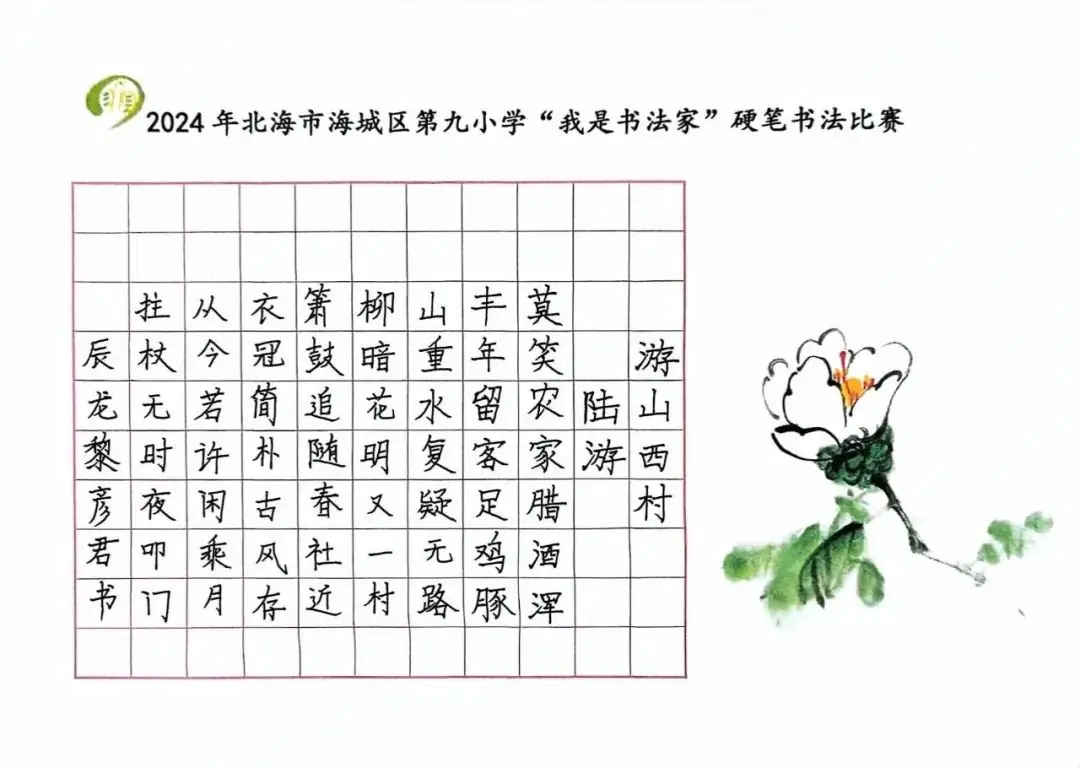 2024年北海市海城区第九小学“我是书法家”硬笔书法比赛
游山西村
陆游
莫笑农家腊酒浑
丰年留客足鸡豚
山重水复疑无路
柳暗花明又一村
箫鼓追随春社近
衣冠简朴古风存
从今若许闲乘月
拄杖无时夜叩门
辰龙黎彦君书